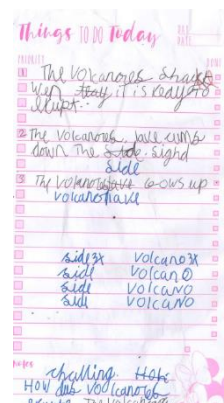 Things TO DO Today
DAY
DATE
PRIORITY
DONE
1 The Volcanoes Shake
wen it is ready to
erupt..
2 The Volcanoes lave cums
down The side. sighd
side
3 The Volcano lave cows up
volcanos lave
side 3x volcano 3x
side volcano
side volcano
side volcano
notes
challing. How
HOW dus volcanoes